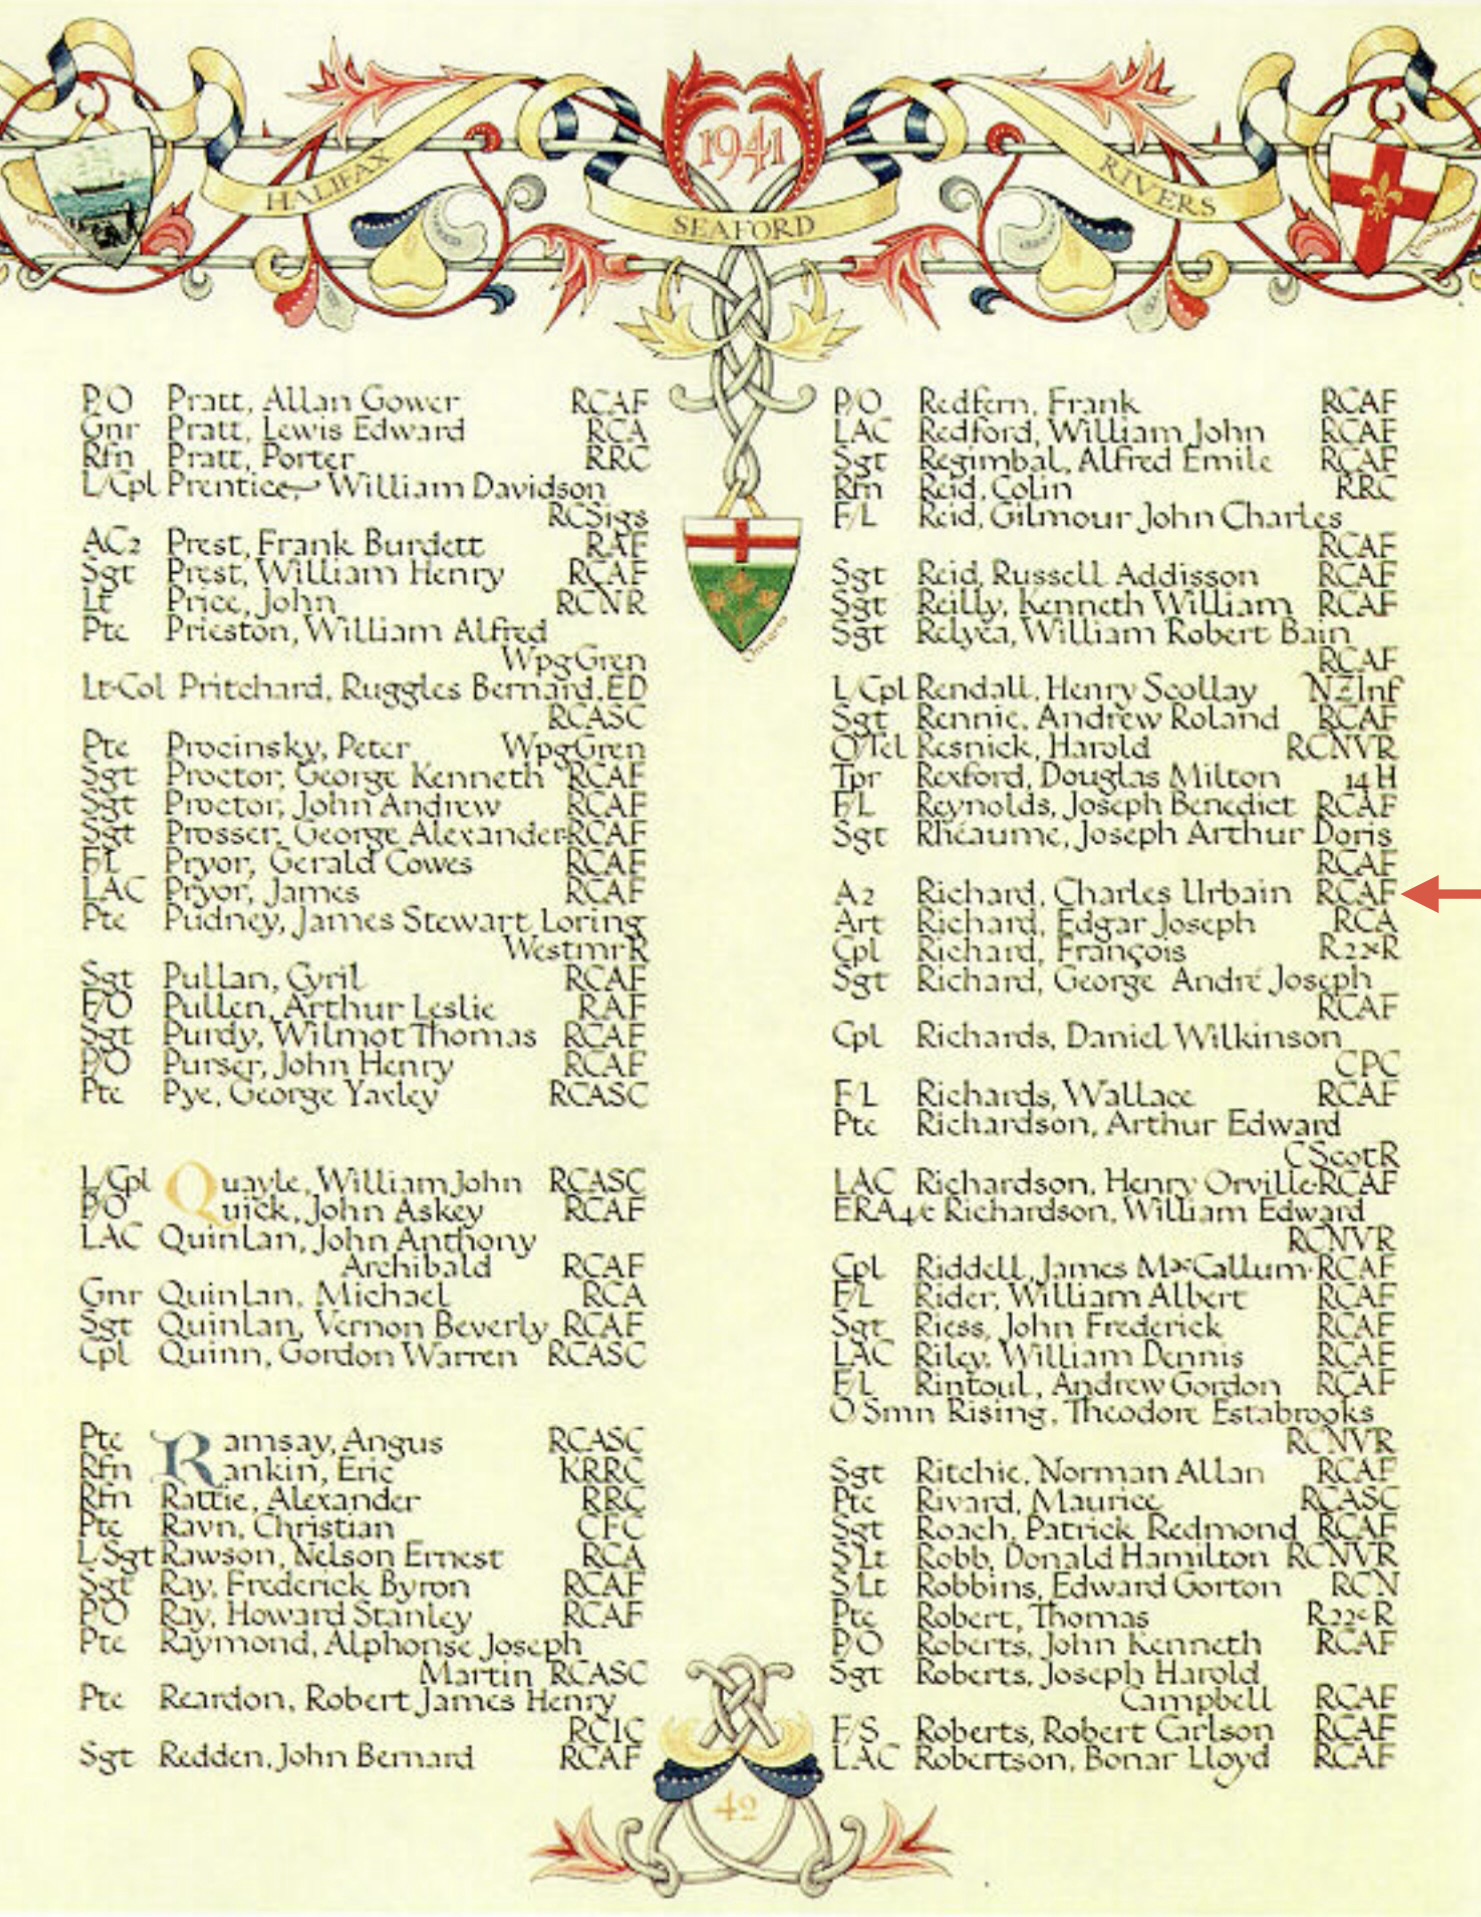 1941
HALIFAX
SEAFORD
RIVERS
P/O Pratt, Allan Gower RCAF
Gnr Pratt, Lewis Edward RCA
Rfn Pratt, Porter RRC
L/Cpl Prentice, William Davidson
RCSigs
AC2 Prest, Frank Burdett RAF
Sgt Prest, William Henry RCAF
Lt Price, John RCNR
Pte Prieston, William Alfred
WpgGren
Lt-Col Pritchard, Ruggles Bernard, ED
RCASC
Pte Procinsky, Peter WpgGren
Sgt Proctor, George Kenneth RCAF
Sgt Proctor, John Andrew RCAF
Sgt Prosser, George Alexander RCAF
F/L Pryor, Gerald Cowes RCAF
LAC Pryor, James RCAF
Pte Pudney, James Stewart Loring
WestmrR
Sgt Pullan, Cyril RCAF
F/O Pullen, Arthur Leslie RAF
Sgt Purdy, Wilmot Thomas RCAF
P/O Purser, John Henry RCAF
Pte Pye, George Yaxley RCASC
L/Cpl Quayle, William John RCASC
P/O Quick, John Askey RCAF
LAC Quinlan, John Anthony
Archibald RCAF
Gnr Quinlan, Michael RCA
Sgt Quinlan, Vernon Beverly RCAF
Cpl Quinn, Gordon Warren RCASC
Pte Ramsay, Angus RCASC
Rfn Rankin, Eric KRRC
Rfn Rattie, Alexander RRC
Pte Ravn, Christian CFC
L/Sgt Rawson, Nelson Ernest RCA
Sgt Ray, Frederick Byron RCAF
P/O Ray, Howard Stanley RCAF
Pte Raymond, Alphonse Joseph
Martin RCASC
Pte Reardon, Robert James Henry
RCIC
Sgt Redden, John Bernard RCAF
Ontario
P/O Redfern, Frank RCAF
LAC Redford, William John RCAF
Sgt Regimbal, Alfred Emile RCAF
Rfn Reid, Colin RRC
F/L Reid, Gilmour John Charles
RCAF
Sgt Reid, Russell Addisson RCAF
Sgt Reilly, Kenneth William RCAF
Sgt Relyea, William Robert Bain
RCAF
L/Cpl Rendall, Henry Scollay NZInf
Sgt Rennie, Andrew Roland RCAF
O/Tel Resnick, Harold RCNVR
Tpr Rexford, Douglas Milton 14 H
F/L Reynolds, Joseph Benedict RCAF
Sgt Rhéaume, Joseph Arthur Doris
RCAF
A2 Richard, Charles Urbain RCAF
Art Richard, Edgar Joseph RCA
Cpl Richard, François R22eR
Sgt Richard, George André Joseph
RCAF
Cpl Richards, Daniel Wilkinson
CPC
F/L Richards, Wallace RCAF
Pte Richardson, Arthur Edward
CScotR
LAC Richardson, Henry Orville RCAF
ERA4/c Richardson, William Edward
RCNVR
Cpl Riddell, James MacCallum RCAF
F/L Rider, William Albert RCAF
Sgt Riess, John Frederick RCAF
LAC Riley, William Dennis RCAF
F/L Rintoul, Andrew Gordon RCAF
O Smn Rising, Theodore Estabrooks
RCNVR
Sgt Ritchie, Norman Allan RCAF
Pte Rivard, Maurice RCASC
Sgt Roach, Patrick Redmond RCAF
S/Lt Robb, Donald Hamilton RCNVR
S/Lt Robbins, Edward Gorton RCN
Pte Robert, Thomas R22eR
P/O Roberts, John Kenneth RCAF
Sgt Roberts, Joseph Harold
Campbell RCAF
F/S Roberts, Robert Carlson RCAF
LAC Robertson, Bonar Lloyd RCAF
42